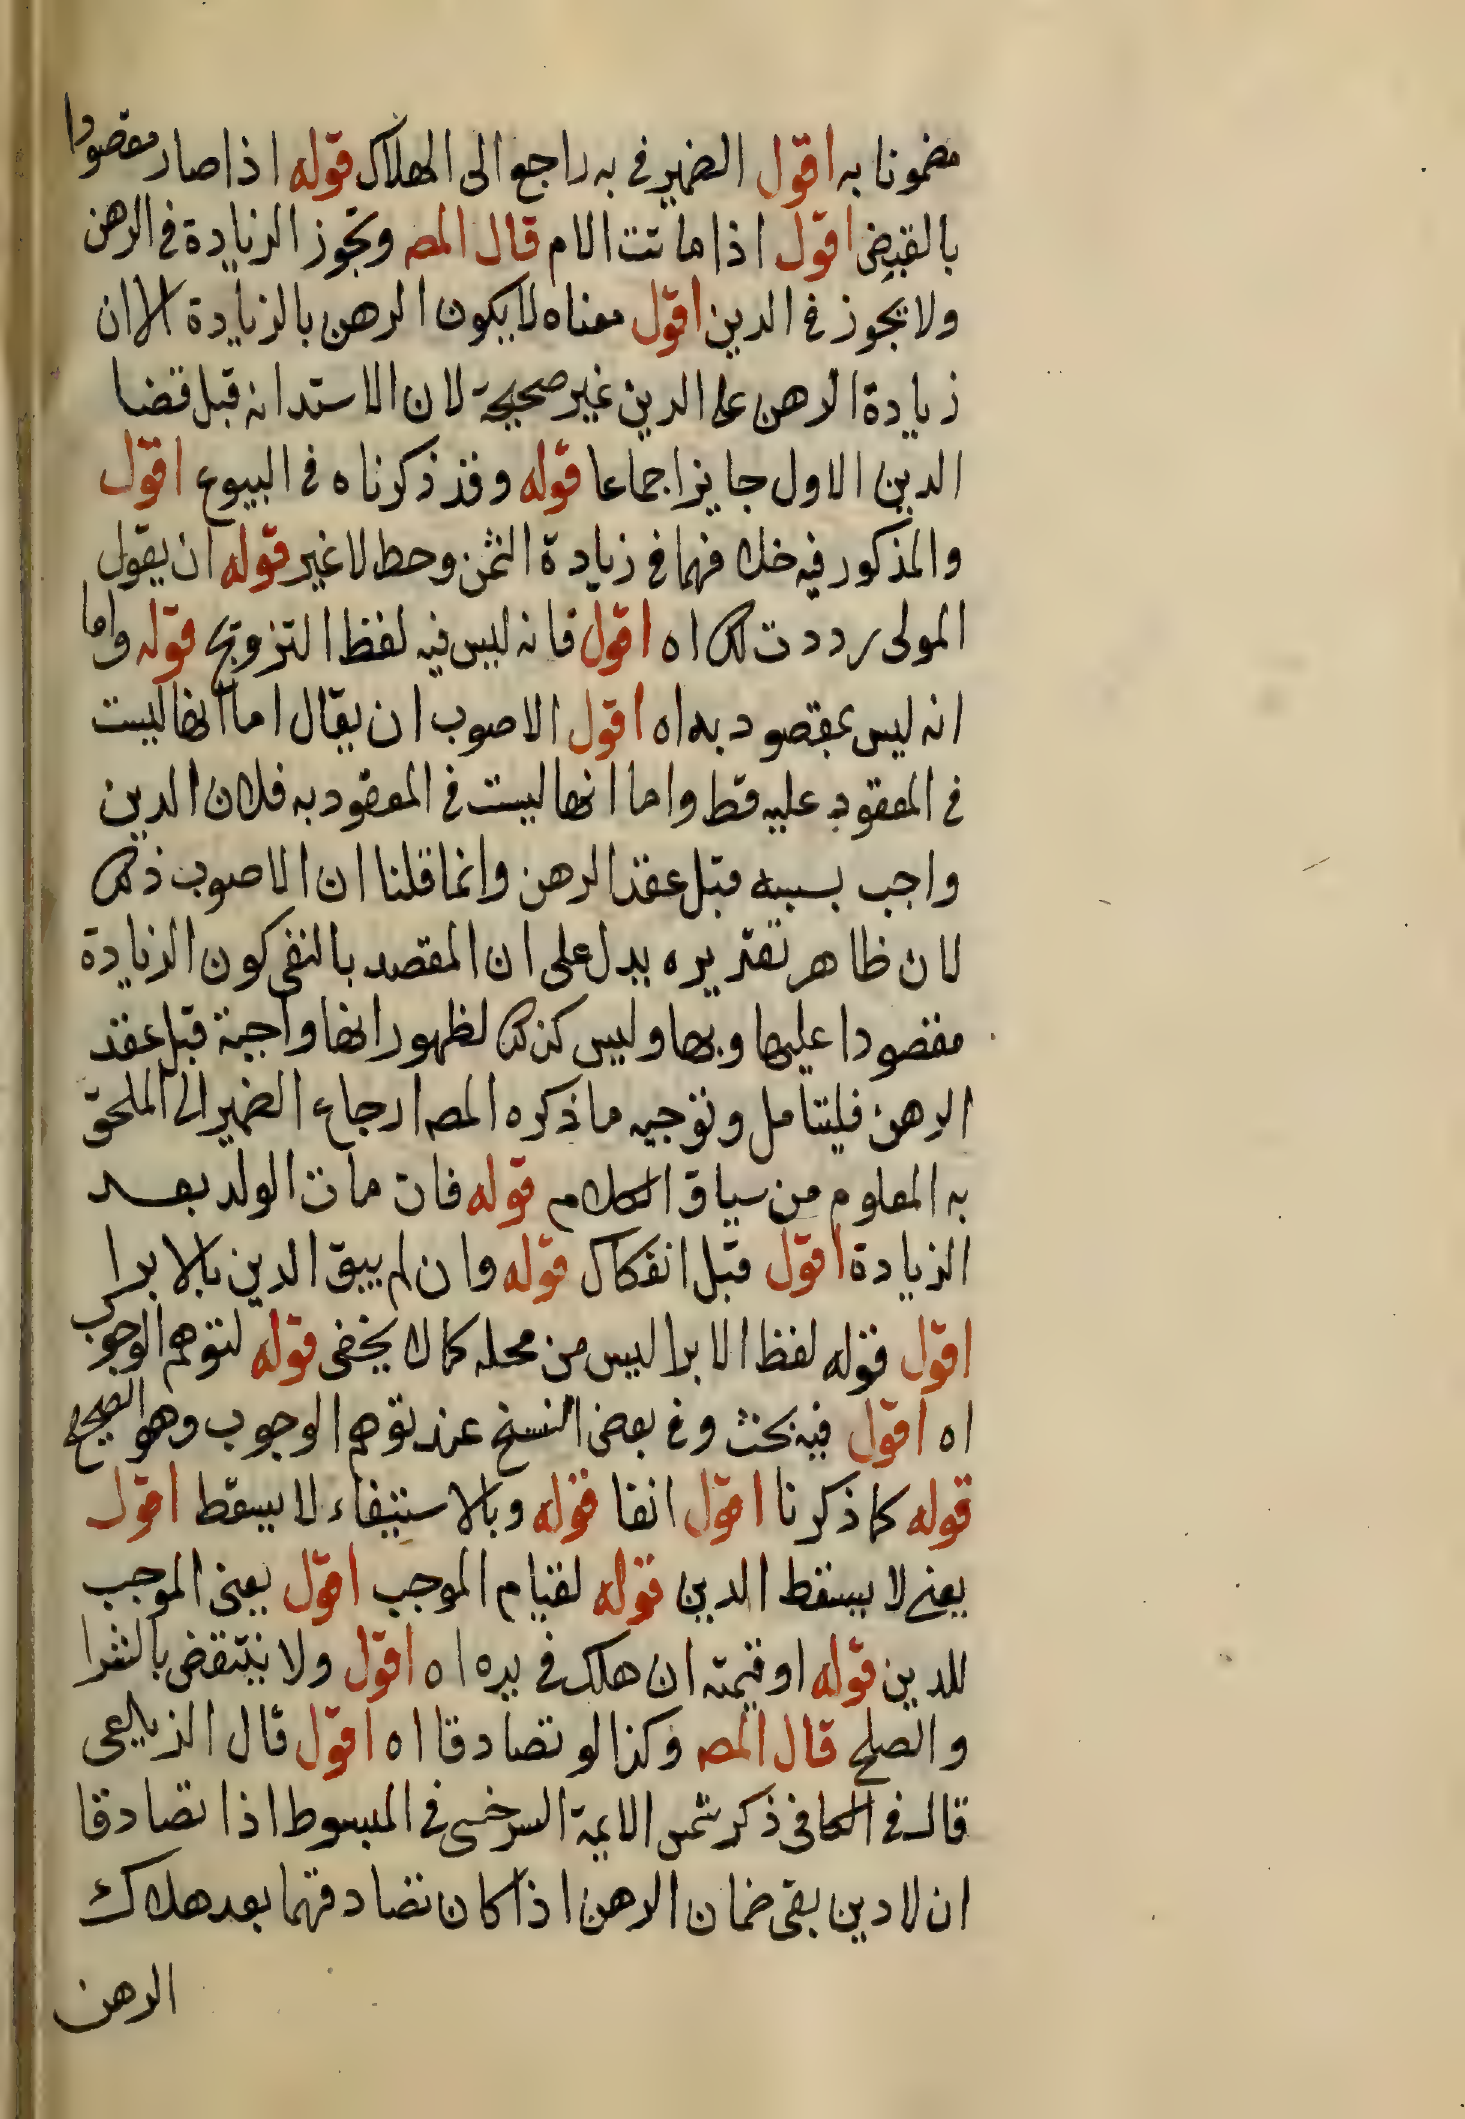 مضمونا به اقول الضمير في به راجع الى الهلاك قوله اذا صار مقصودا
بالقبض اقول اذا ماتت الام قال المصـ وتجوز الزيادة في الرهن
ولا يجوز في الدين اقول معناه لا يكون الرهن بالزيادة الا ان
زيادة الرهن على الدين غير صحيحة لان الاستدانه قبل قضا
الدين الاول جايز اجماعا قوله وقد ذكرناه في البيوع اقول
والمذكور فيه خلافهما في زيادة الثمن وحط لا غير قوله ان يقول
المولى رددت لك اه اقول فانه ليس فيه لفظ التزويج قوله واما
انه ليس بمقصود به اه اقول الاصوب ان يقال اما انها ليست
في المعقود عليه قط واما انها ليست في المعقود به فلان الدين
واجب بسببه قبل عقد الرهن وانما قلنا ان الاصوب ذلك
لان ظاهر تقديره يدل على ان المقصد بالنفي كون الزيادة
مقصودا عليها وبها وليس كذلك لظهور انها واجبة قبل عقد
الرهن فليتامل وتوجيه ما ذكره المصـ ارجاع الضمير الى الملحق
به المعلوم من سياق الكلام قوله فان مات الولد بعد
الزيادة اقول قبل انفكاك قوله وان لم يبق الدين بالابرا
اقول قوله لفظ الابرا ليس من محله كما لا يخفى قوله لتوهم الوجوب
اه اقول فيه بحث وفي بعض النسخ عند توهم الوجوب وهو الصحيح
قوله كما ذكرنا اقول انفا قوله وبالاستيفاء لا يسقط اقول
يعنى لا يسقط الدين قوله لقيام الموجب اقول يعنى الموجب
للدين قوله او قيمته ان هلك في يده اه اقول ولا ينتقض بالشرا
والصلح قال المصـ وكذا لو تصادقا اه اقول قال الزيلعى
قال في الكافى ذكر شمس الايمة السرخسى في المبسوط اذا تصادقا
ان لا دين بقى ضمان الرهن اذا كان تصادقهما بعد هلاك
الرهن